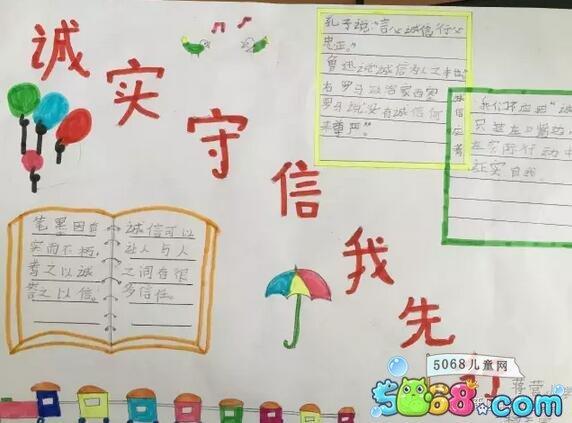 诚实守信我先行
孔子说:"言必诚信行必
忠正。"
鲁迅说"诚信为人之本也"
古罗马政治家西塞
罗马说"没有诚信何
来尊严"。
诚信在
我们不应把"诚
只挂在口
在实际行动中
证实自我。
笔墨因自
实而不朽,
诚信可以
让人与人
之间有很
多信任。
5068儿童网
5068.com